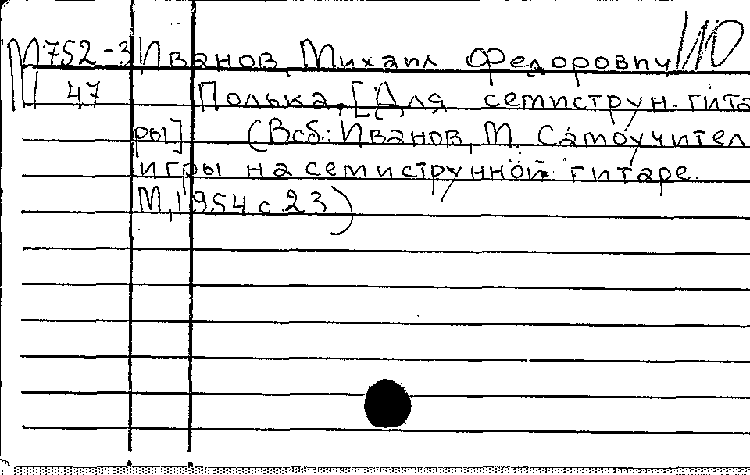 М752-3 Иванов, Михаил Федорович
47 Полька. [Для семиструн. гита
ры] (В сб: Иванов, М. Самоучител
игры на семиструнной гитаре.
М, 1954 с 23)